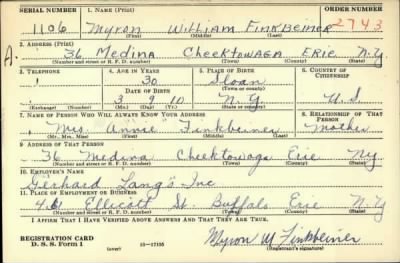 SERIAL NUMBER 1. NAME (Print) ORDER NUMBER
1106 Myron William Finkbeiner 2743
(First) (Middle) (Last)
2. ADDRESS (Print)
A. 36 Medina Cheektowaga Erie N.Y
(Number and street or R. F. D. number) (Town) (County) (State)
3. TELEPHONE 4. AGE IN YEARS 5. PLACE OF BIRTH 6. COUNTRY OF CITIZENSHIP
30 Sloan
DATE OF BIRTH (Town or county)
3 9 10 N.Y. U.S
(Exchange) (Number) (Mo.) (Day) (Yr.) (State or country)
7. NAME OF PERSON WHO WILL ALWAYS KNOW YOUR ADDRESS 8. RELATIONSHIP OF THAT PERSON
Mrs "Annie" Finkbeiner Mother
(Mr., Mrs., Miss) (First) (Middle) (Last)
9. ADDRESS OF THAT PERSON
36 Medina Cheektowaga Erie Ny
(Number and street or R. F. D. number) (Town) (County) (State)
10. EMPLOYER'S NAME
Gerhard Lang's Inc
11. PLACE OF EMPLOYMENT OR BUSINESS
Ellicott St Buffalo Erie N.Y
(Number and street or R. F. D. number) (Town) (County) (State)
I AFFIRM THAT I HAVE VERIFIED ABOVE ANSWERS AND THAT THEY ARE TRUE.
REGISTRATION CARD
D. S. S. Form 1 (over) 16—17105 Myron W Finkbeiner
(Registrant's signature)